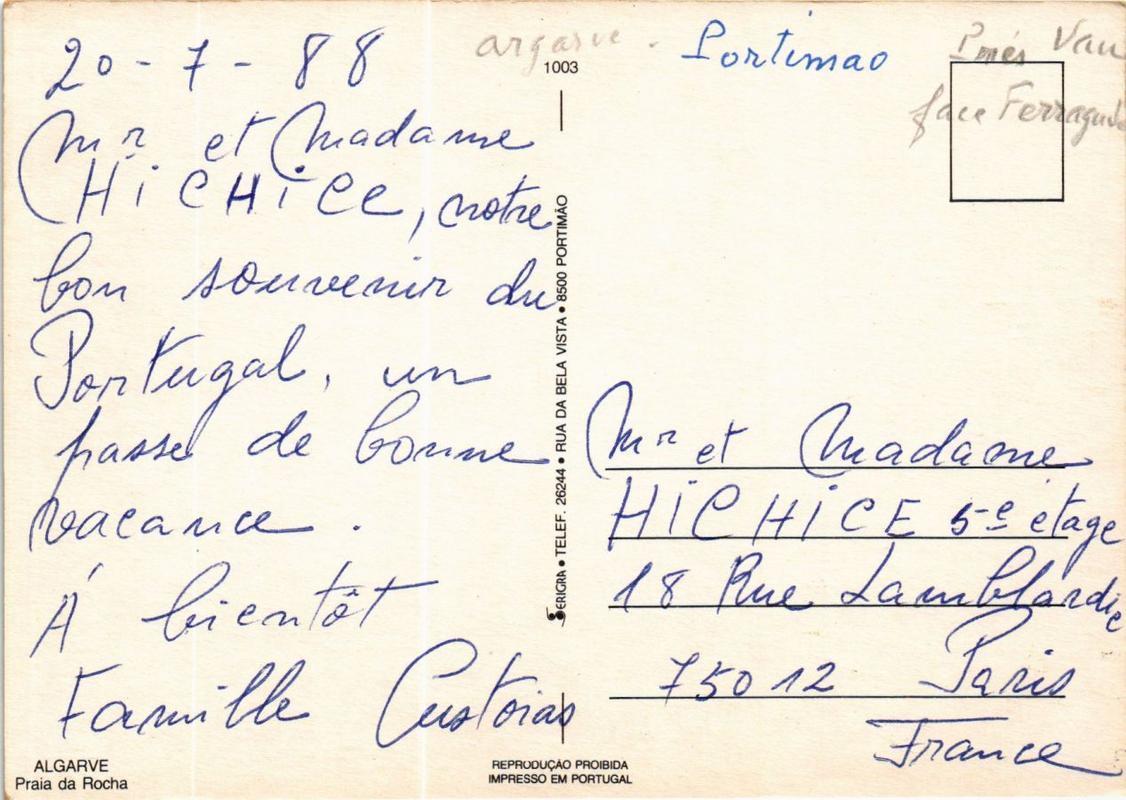 20-7-88
Mr et Madame
HiCHiCE, notre
bon souvenir du
Portugal, un
passe de bonne
vacance.
Á bientôt
Famille Custoias
ALGARVE
Praia da Rocha
argarve.
1003
SERIGRA • TELEF. 26244 • RUA DA BELA VISTA • 8500 PORTIMÃO
REPRODUÇÃO PROIBIDA
IMPRESSO EM PORTUGAL
Portimao
Vau
face Ferragudo
Mr et Madame
HiCHiCE 5e étage
18 Rue Lamblardie
75012 Paris
France